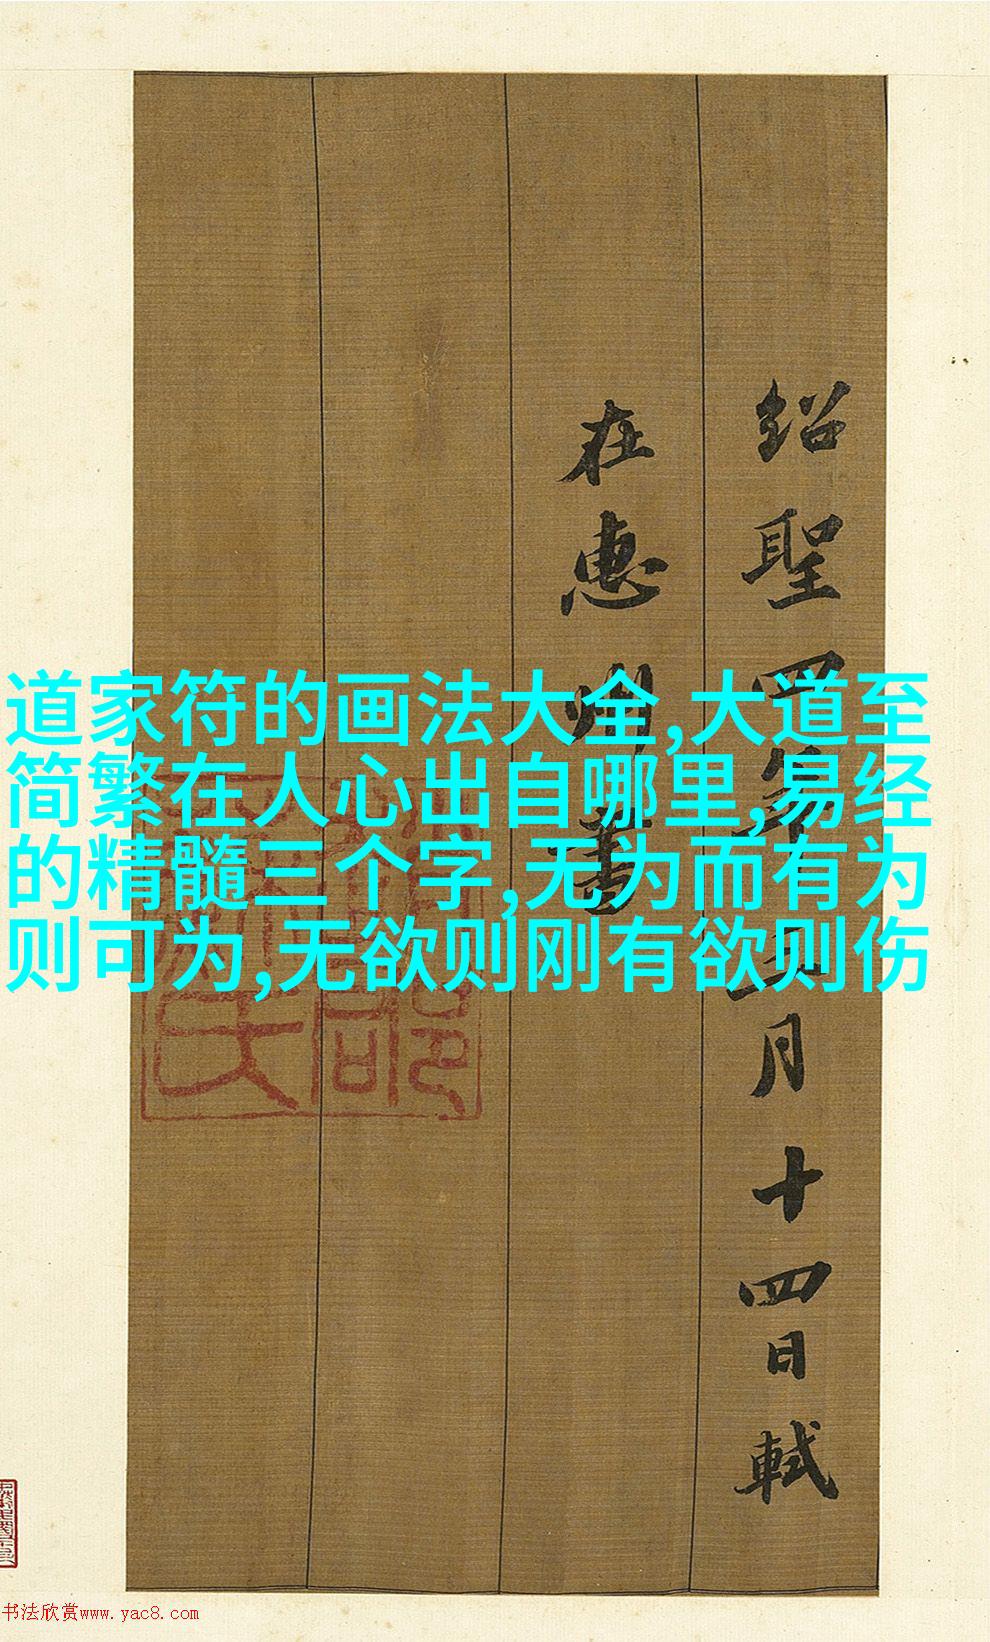 道家符的画法大全,大道至
简繁在人心出自哪里,易经
的精髓三个字,无为而有为
则可为,无欲则刚有欲则伤
紹聖四年三月十四日軾
在惠州書
书法欣赏www.yac8.com